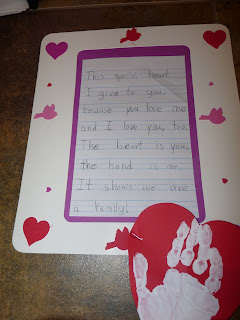 This special heart
I give to you,
because you love me
and I love you, too.
The heart is you,
the hand is me.
It shows we are
a family!